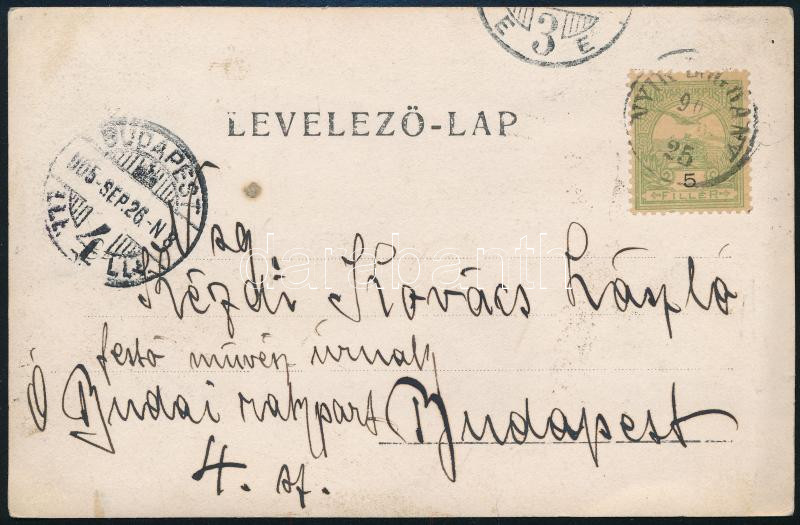 E 3 E
LEVELEZŐ-LAP
NYIR BOGDÁNY
90
25
5
FILLÉR
BUDAPEST
905-SEP.26-N
sa
Kézdi Kovács László
festő művész úrnak
Ó Budai rakpart Budapest
4. sz.
darabanth